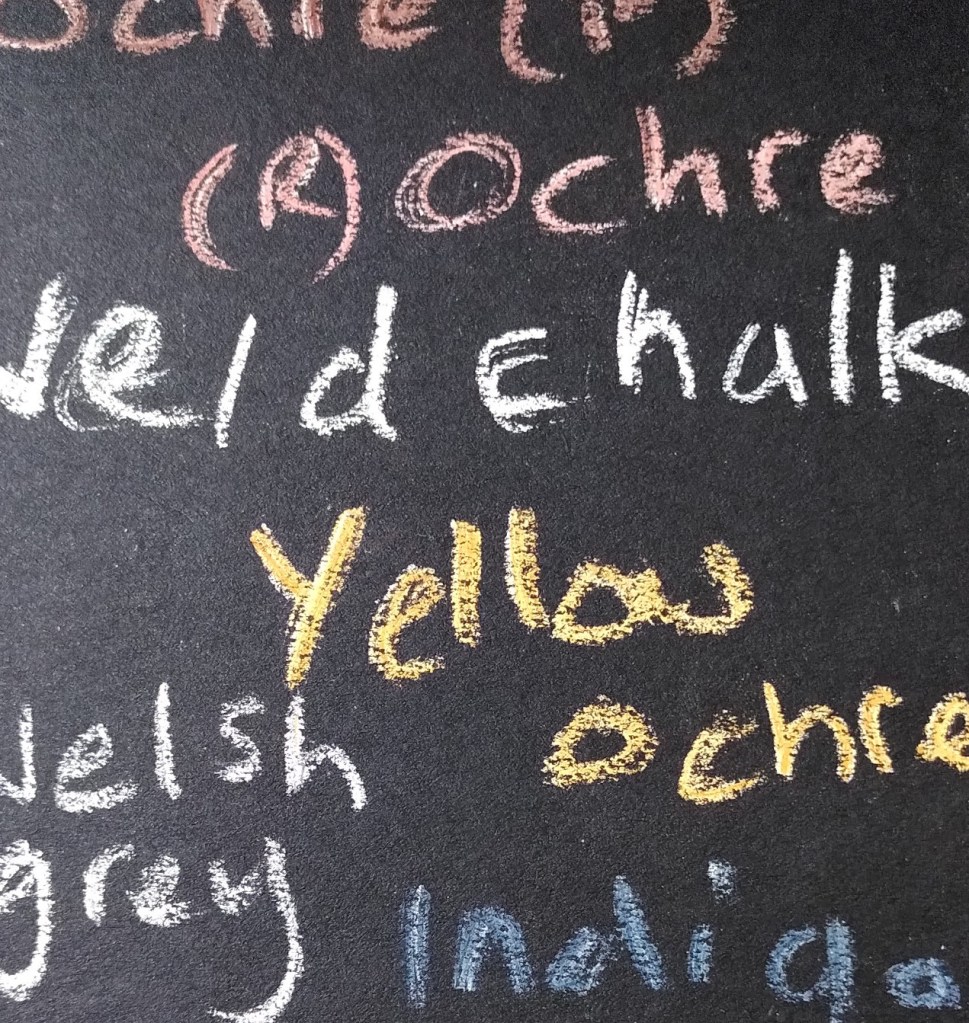 Ochre (P)
(R) Ochre
Weld chalk
Yellow
Ochre
Welsh
grey
Indigo